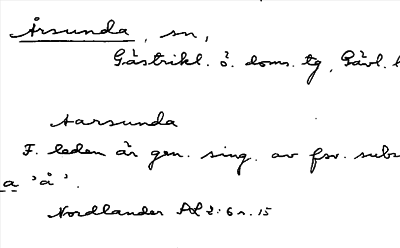 Årsunda, sn,
Gästrikl. ö. doms. tg, Gävl. l
Aarsunda
F. leden är gen. sing. av fsv. subs
a 'å'.
Nordlander NL 2:6 s. 15